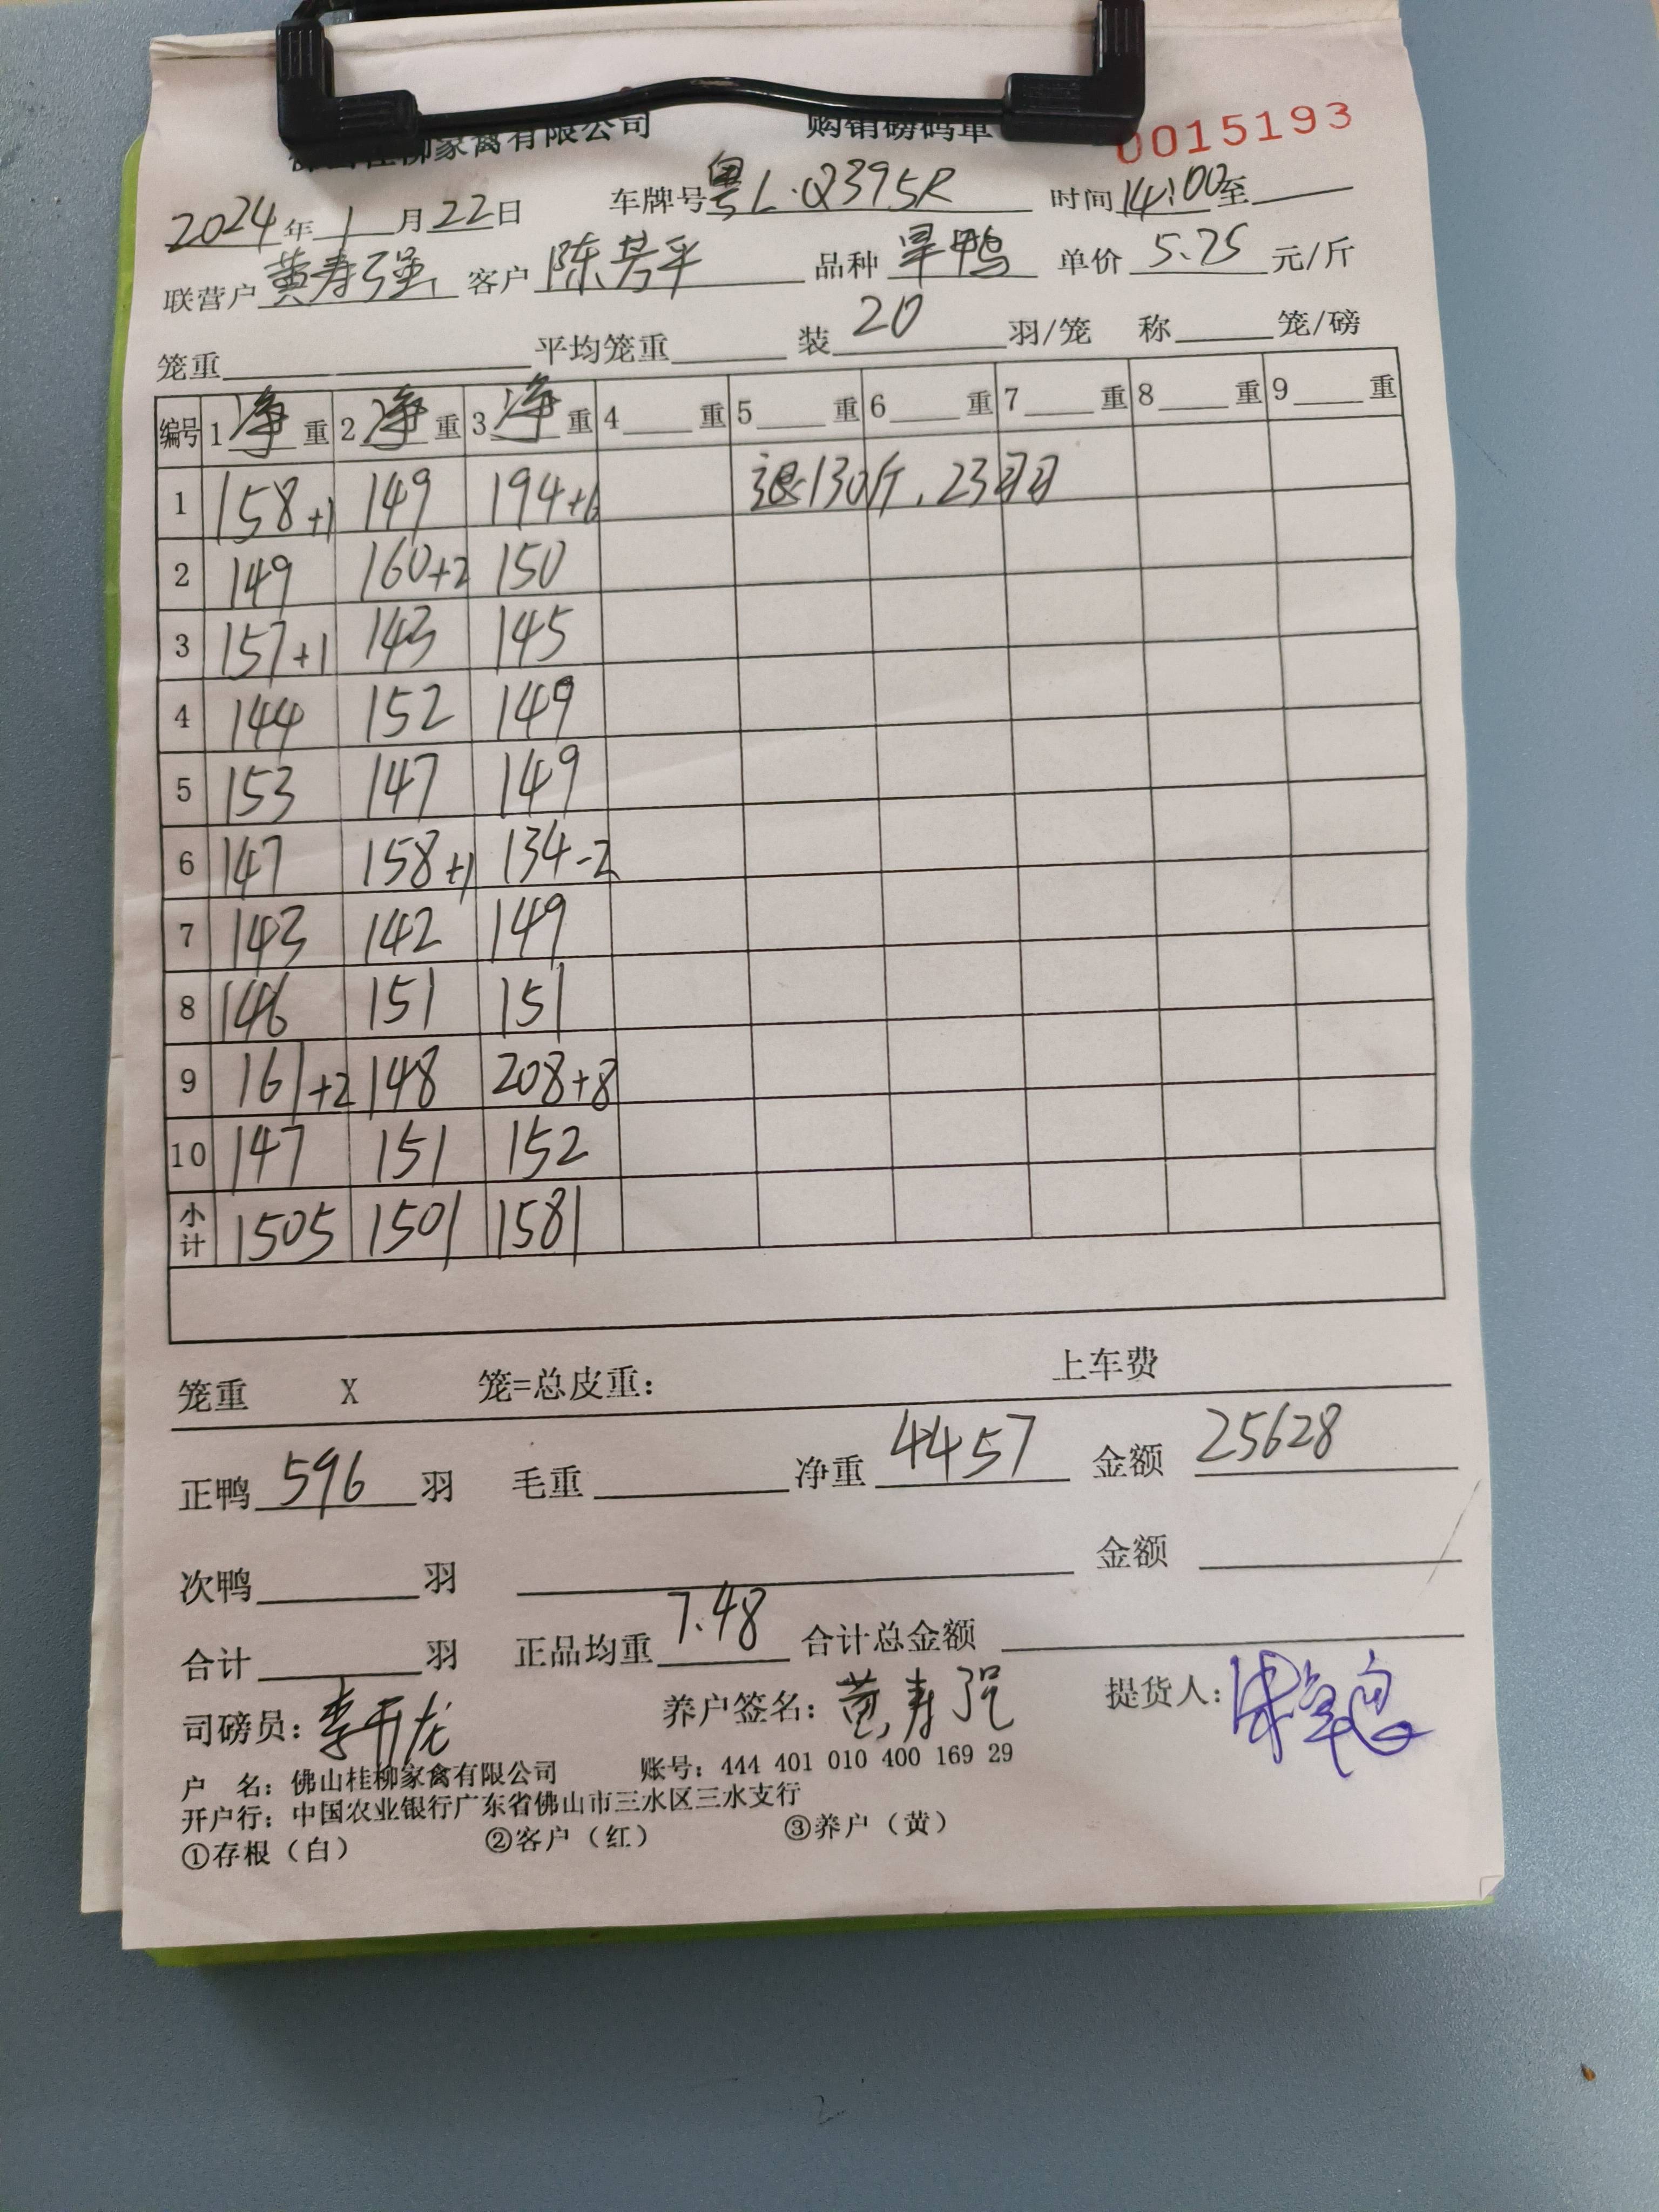 桂柳家禽有限公司 购销磅码单 0015193
2024年1月22日 车牌号粤L·Q395R 时间14:00至
联营户黄寿强 客户陈芳平 品种旱鸭 单价5.75元/斤
笼重 平均笼重 装20羽/笼 称 笼/磅
编号 1净重 2净重 3净重 4 重 5 重 6 重 7 重 8 重 9 重
1 158+1 149 194+6 退130斤,23羽
2 149 160+2 150
3 157+1 143 145
4 144 152 149
5 153 147 149
6 147 158+1 134-2
7 143 142 149
8 146 151 151
9 161+2 148 208+8
10 147 151 152
小计 1505 1501 1581
笼重 X 笼=总皮重: 上车费
正鸭596羽 毛重 净重4457 金额25628
次鸭 羽 金额
合计 羽 正品均重7.48 合计总金额
司磅员:李开龙 养户签名:黄寿强 提货人:
户 名:佛山桂柳家禽有限公司 账号:444 401 010 400 169 29
开户行:中国农业银行广东省佛山市三水区三水支行
①存根(白) ②客户(红) ③养户(黄)